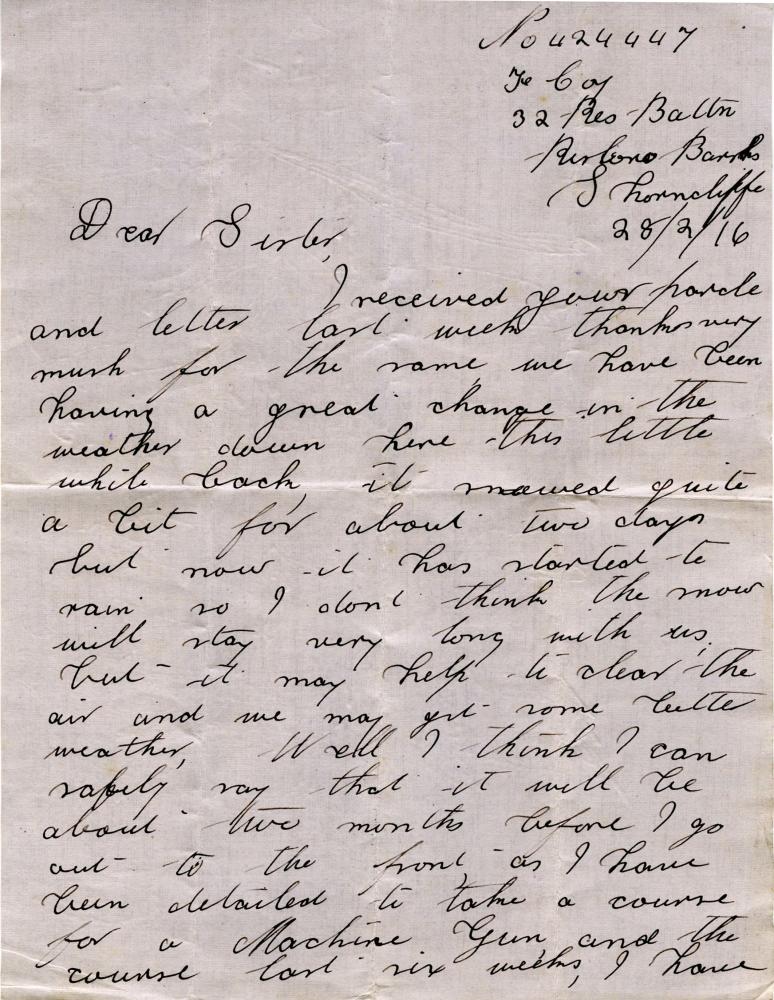 No 424447
F Coy
32 Res Battn
Risboro Barrks
Shorncliffe
28/2/16
Dear Sister,
I received your parcle
and letter last week thanks very
mush for the same, we have been
having a great change in the
weather down here this little
while back, it snowed quite
a bit for about two days
but now it has started to
rain so I dont think the snow
will stay very long with us,
but it may help to clear the
air and we may get some better
weather, Well I think I can
safely say that it will be
about two months before I go
out to the front as I have
been detailed to take a course
for a Machine Gun and the
course last six weeks, I have